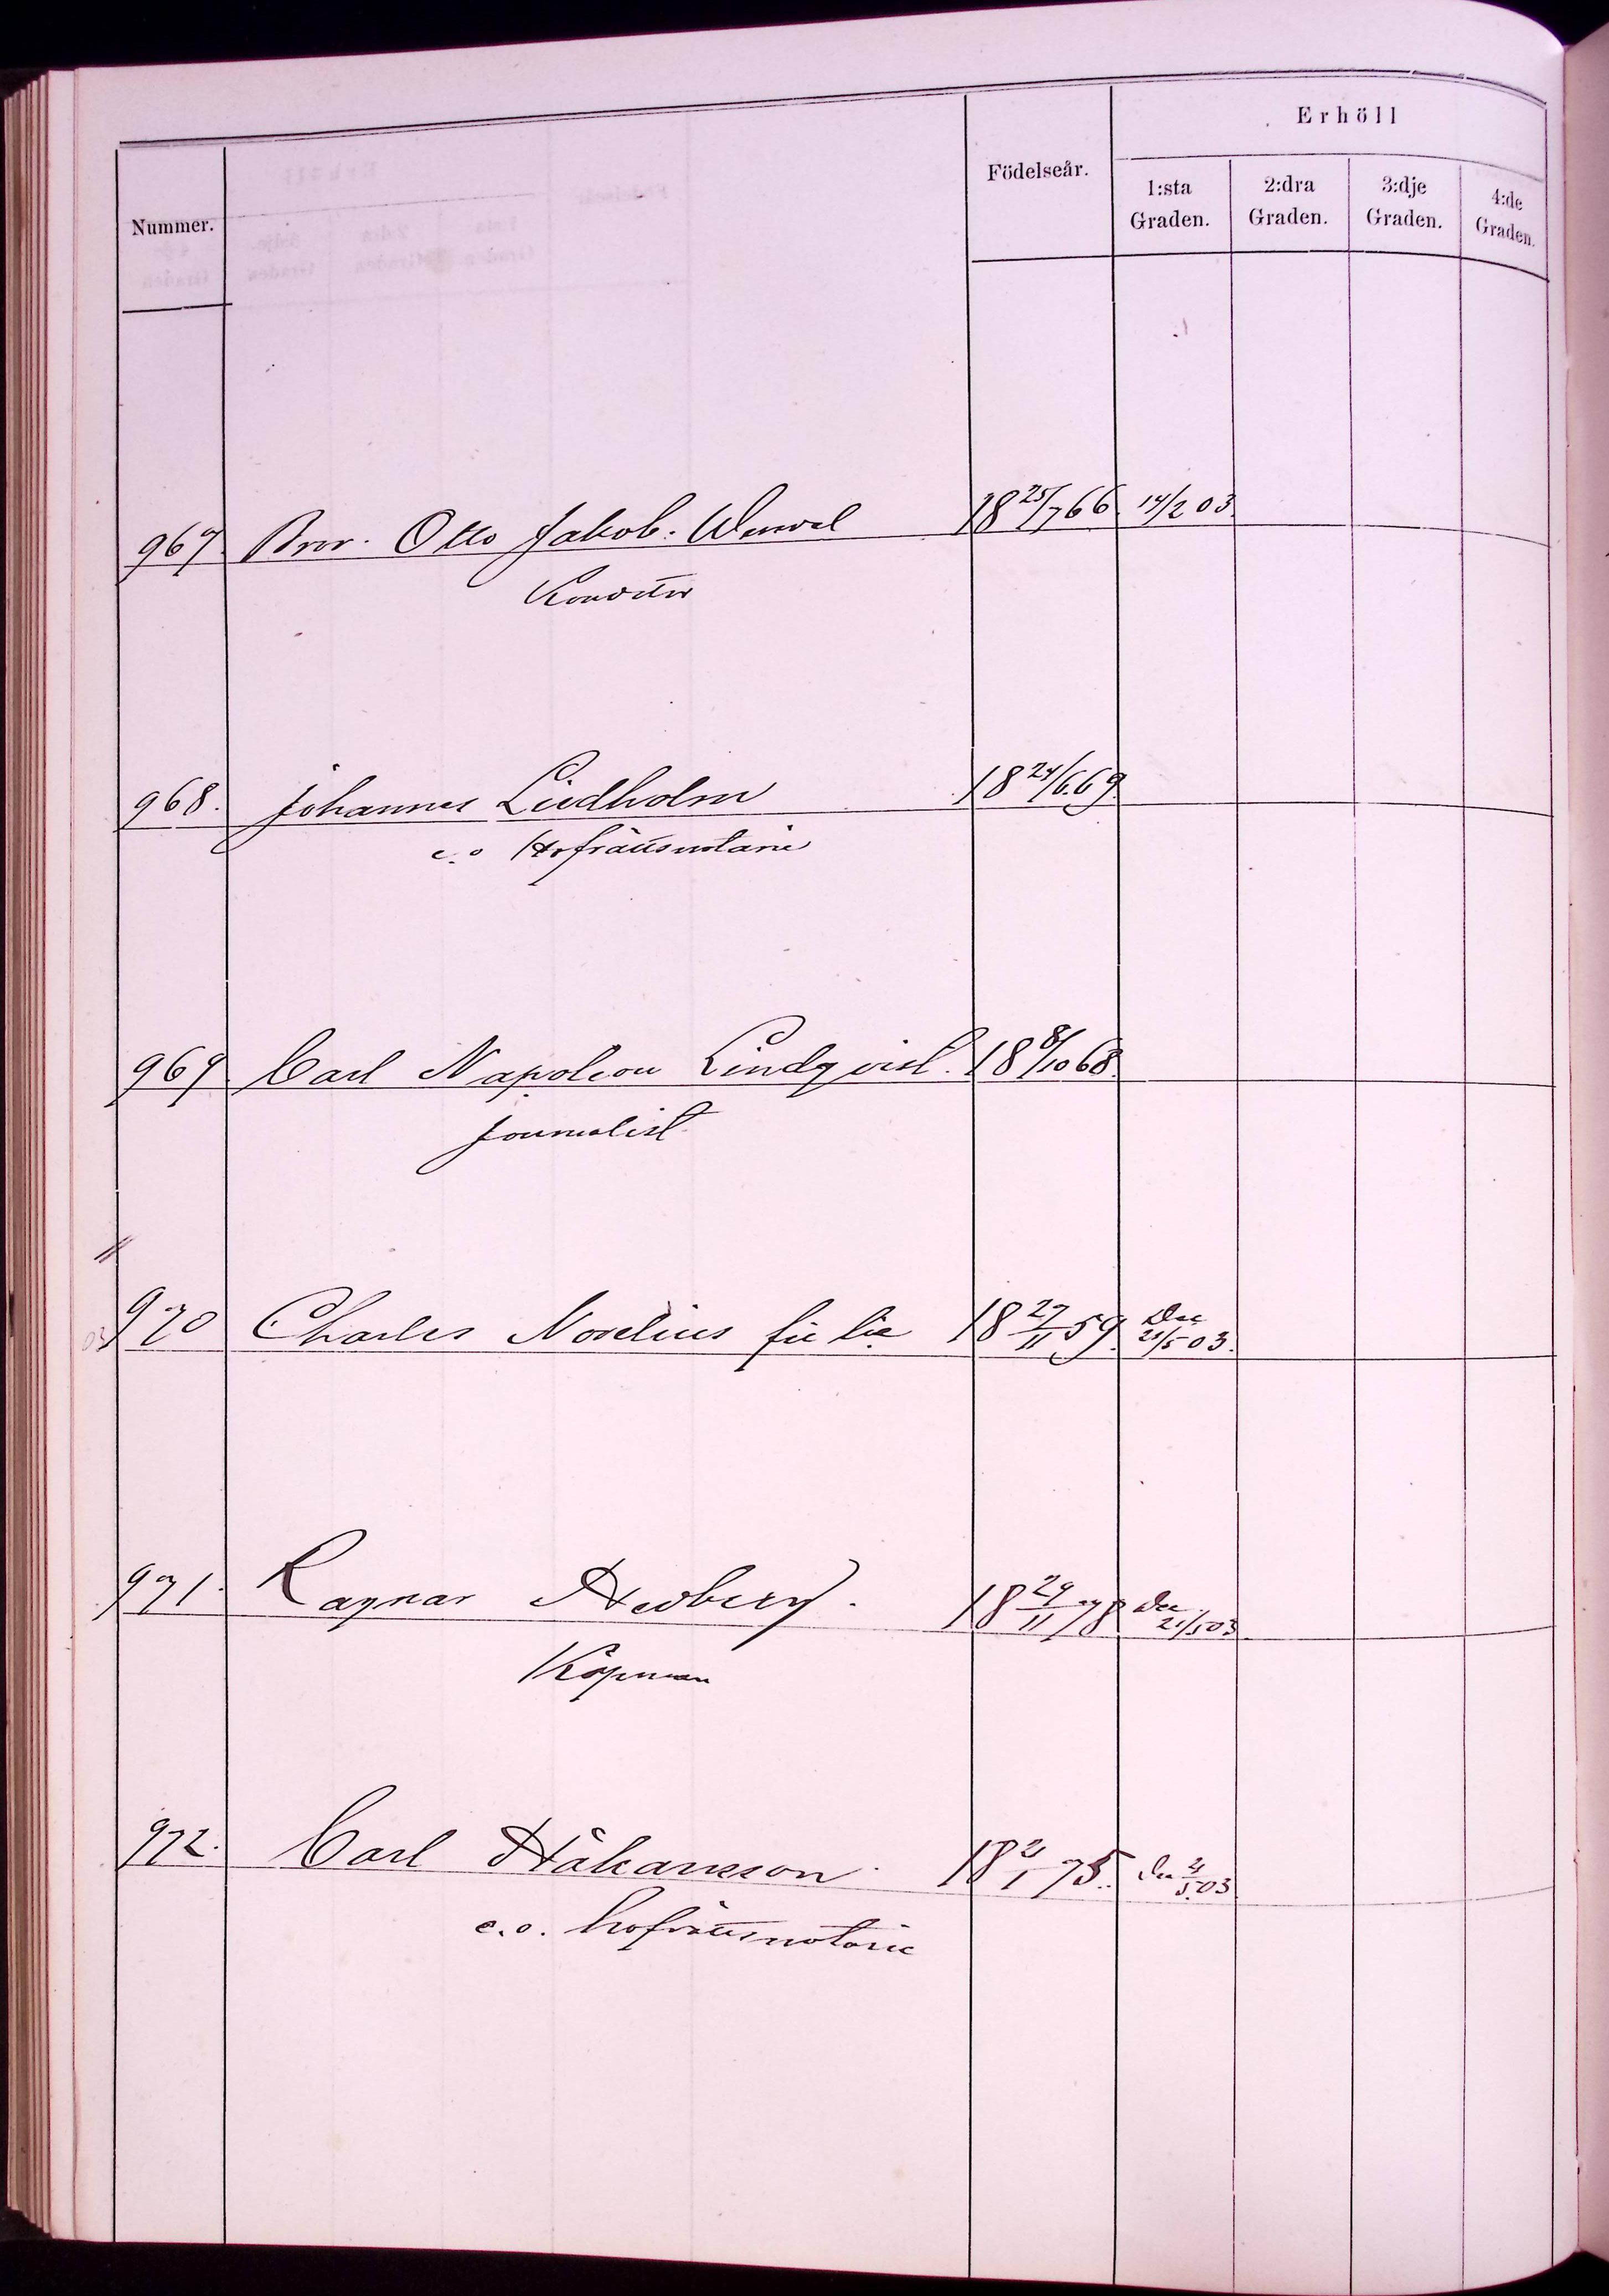 Nummer.
Födelseår.
Erhöll
1:sta Graden.
2:dra Graden.
3:dje Graden.
4:de Graden.
967. Bror. Otto Jakob. 18 25/7 66. 14/2 03.
968. Johannes Liedholm 18 24/6 69
e.o Hofrättsnotarie
969. Carl Napoleon Lindqvist. 18 8/10 68.
Journalist
970 Charles Norelius 18 27/11 59. 21/5 03.
971. Ragnar Hedberg. 18 29/11 78 21/5 03
Köpman
972. Carl Håkansson 18 21/1 75. 21/5.03
e.o. hofrättsnotarie